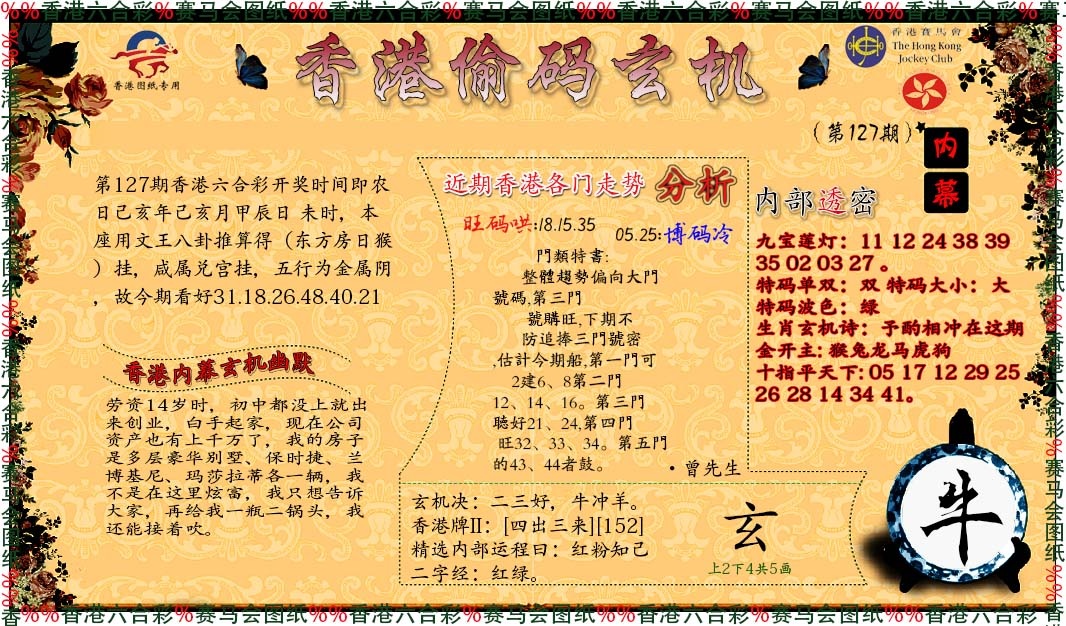 %%香港六合彩%赛马会图纸%%香港六合彩%赛马会图纸%%香港六合彩%赛马会图纸%%香港六合彩%赛
香港图纸专用
香港偷码玄机
香港賽馬會
The Hong Kong
Jockey Club
(第127期)
内幕
第127期香港六合彩开奖时间即农
日己亥年己亥月甲辰日 未时，本
座用文王八卦推算得（东方房日猴
）挂，咸属兑宫挂，五行为金属阴
，故今期看好31.18.26.48.40.21
香港内幕玄机幽默
劳资14岁时，初中都没上就出
来创业，白手起家，现在公司
资产也有上千万了，我的房子
是多层豪华别墅、保时捷、兰
博基尼、玛莎拉蒂各一辆，我
不是在这里炫富，我只想告诉
大家，再给我一瓶二锅头，我
还能接着吹。
近期香港各门走势 分析
旺码哄:18.15.35
05.25:博码冷
門類特書:
整體趨勢偏向大門
號碼,第三門
號購旺,下期不
防追捧三門號密
,估計今期船,第一門可
2建6、8第二門
12、14、16。第三門
聽好21、24,第四門
旺32、33、34。第五門
的43、44者鼓。
·曾先生
玄机决：二三好，牛冲羊。
香港牌II：[四出三来][152]
精选内部运程曰：红粉知己
二字经：红绿。
玄
上2下4共5画
内部透密
九宝莲灯：11 12 24 38 39
35 02 03 27 。
特码单双：双 特码大小：大
特码波色：绿
生肖玄机诗：予酌相冲在这期
金开主: 猴兔龙马虎狗
十指平天下: 05 17 12 29 25
26 28 14 34 41。
牛
香%%香港六合彩%赛马会图纸%%香港六合彩%赛马会图纸%%香港六合彩%赛马会图纸%%香港六合彩%